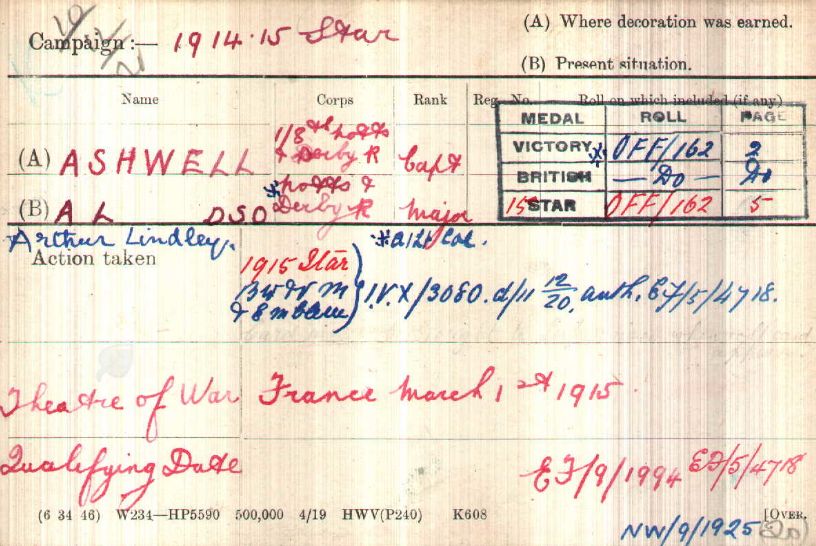 (A) Where decoration was earned.
Campaign :— 1914·15 Star
(B) Present situation.
Name Corps Rank Reg. No. Roll on which included (if any)
MEDAL ROLL PAGE
(A) ASHWELL 1/8th Notts & Derby R Capt
VICTORY * OFF/162 2
BRITISH — Do — Do
(B) A L DSO * Notts & Derby R Major
15 STAR OFF/162 5
Arthur Lindley. *a/Lt Col.
Action taken
1915 Star
BW & V M
& Emblem
I.V.X/3080. d/11 12/20. auth. EF/5/4718.
Theatre of War France March 1st 1915
Qualifying Date
EF/9/1994 EF/5/4718
(6 34 46) W234—HP5590 500,000 4/19 HWV(P240) K608 [OVER.
NW/9/1925